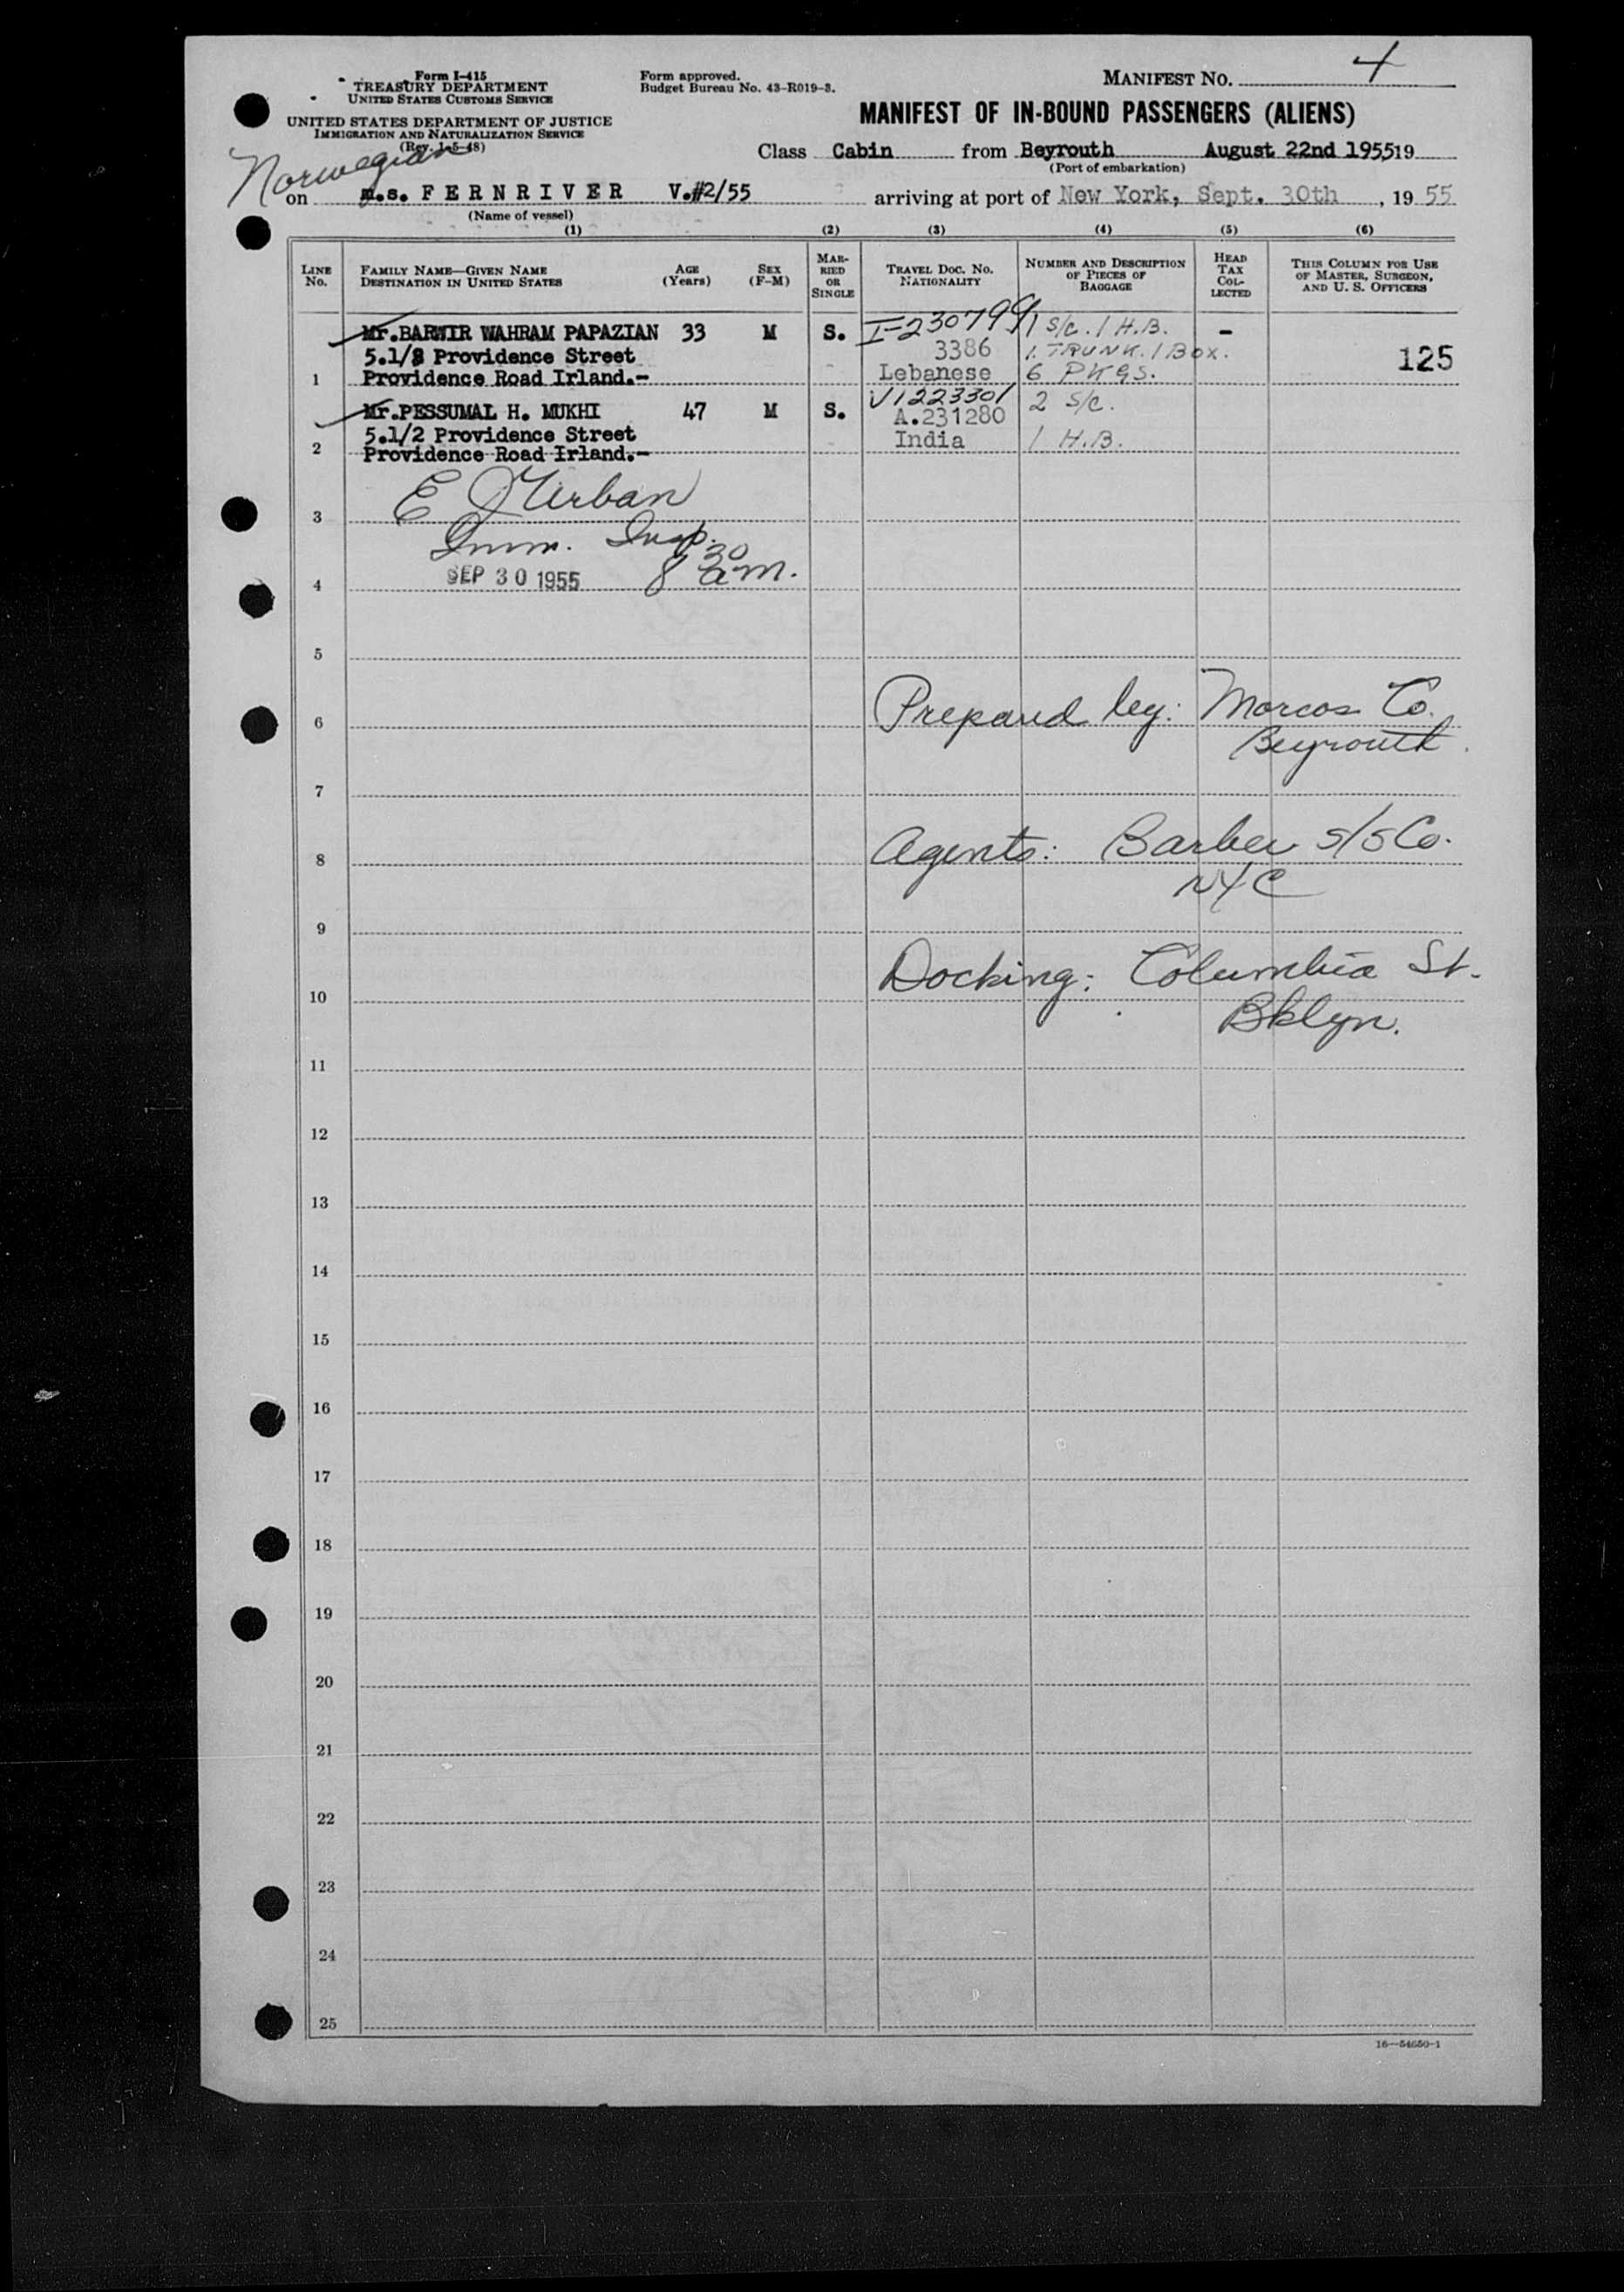 Form I-415
TREASURY DEPARTMENT
UNITED STATES CUSTOMS SERVICE
UNITED STATES DEPARTMENT OF JUSTICE
IMMIGRATION AND NATURALIZATION SERVICE
(Rev. 1-5-48)
Form approved.
Budget Bureau No. 43-R019-3.
MANIFEST NO. 4
MANIFEST OF IN-BOUND PASSENGERS (ALIENS)
Class Cabin from Beyrouth August 22nd 195519
(Port of embarkation)
Norwegian
on m.s. FERNRIVER V.#2/55 arriving at port of New York, Sept. 30th, 19 55
(Name of vessel)
(1) (2) (3) (4) (5) (6)
LINE NO. FAMILY NAME—GIVEN NAME DESTINATION IN UNITED STATES AGE (Years) SEX (F-M) MAR-RIED OR SINGLE TRAVEL DOC. NO. NATIONALITY NUMBER AND DESCRIPTION OF PIECES OF BAGGAGE HEAD TAX COL-LECTED THIS COLUMN FOR USE OF MASTER, SURGEON, AND U. S. OFFICERS
Mr.BARWIR WAHRAM PAPAZIAN 33 M S. I-230799 1 S/C. 1 H.B. -
5.1/8 Providence Street 3386 1. TRUNK. 1 BOX. 125
1 Providence Road Irland.- Lebanese 6 PKGS.
Mr.PESSUMAL H. MUKHI 47 M S. V1223301 2 S/C.
5.1/2 Providence Street A.231280
2 Providence Road Irland.- India 1 H.B.
E J Urban
3
Imm. Insp.
4 SEP 30 1955 8 30 a.m.
5
6 Prepared by: Marcos Co.
Beyrouth.
7
8 Agents: Barber S/S Co.
NYC
9
10 Docking: Columbia St.
Bklyn.
11
12
13
14
15
16
17
18
19
20
21
22
23
24
25
16—54650-1